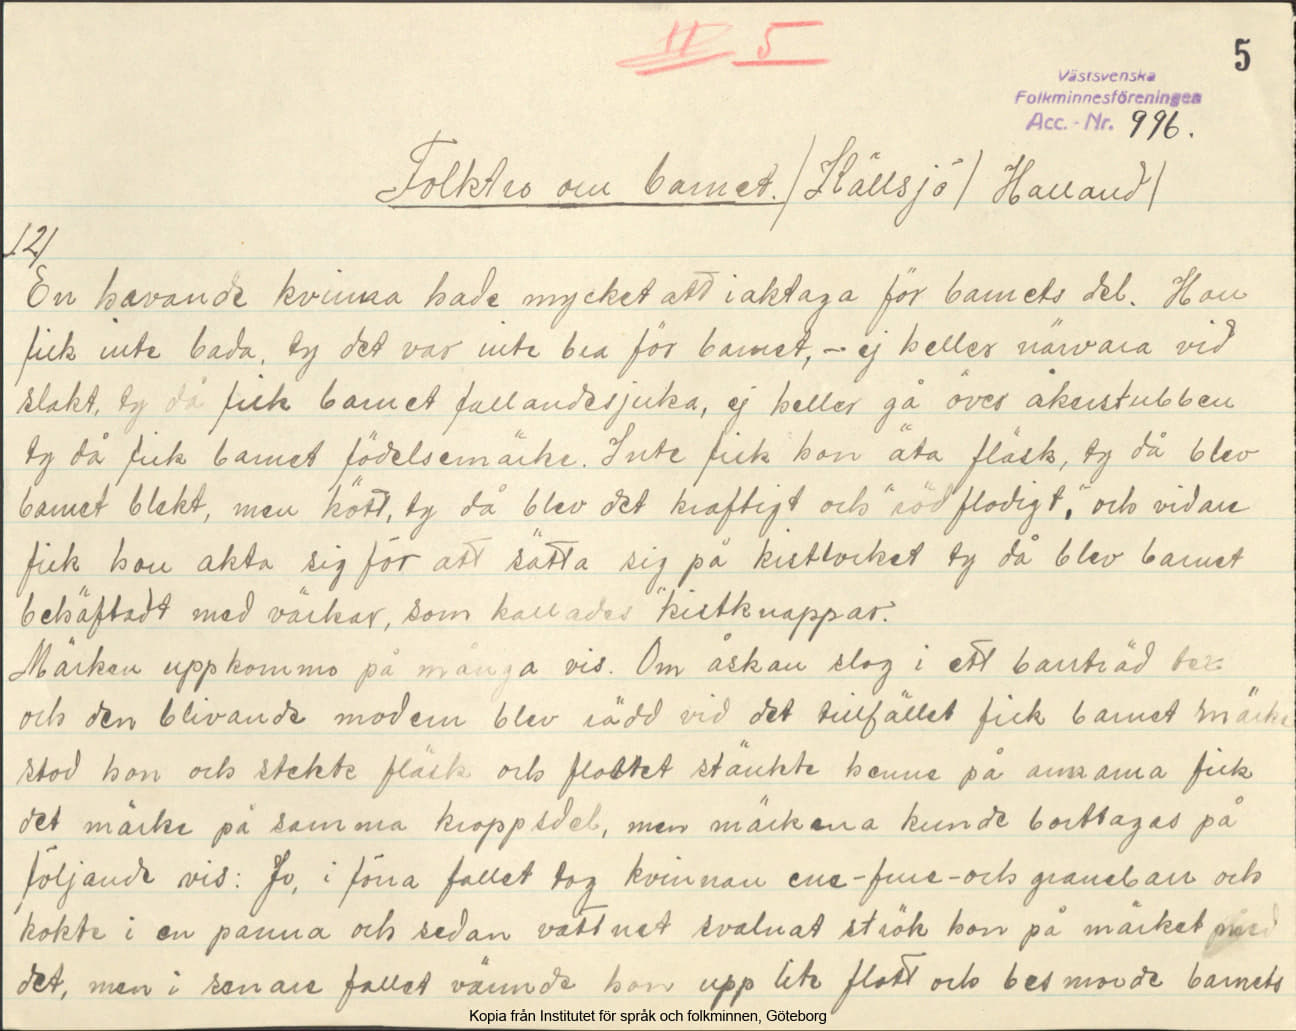 II 5
5
Västsvenska
Folkminnesföreningen
Acc. - Nr. 996.
Folktro om barnet. / Källsjö / Halland /
12/
En havande kvinna hade mycket att iaktaga för barnets del. Hon
fick inte bada, ty det var inte bra för barnet, - ej heller närvara vid
slakt, ty då fick barnet fallandesjuka, ej heller gå över åkerstubben
ty då fick barnet födelsemärke. Inte fick hon äta fläsk, ty då blev
barnet blekt, men kött, ty då blev det kraftigt och "rödflodigt", och vidare
fick hon akta sig för att sätta sig på kistlocket ty då blev barnet
behäftadt med värkar, som kallades "kistknappar".
Märken uppkommo på många vis. Om åskan slog i ett barrträd
och den blivande modern blev rädd vid det tillfället fick barnet märke
stod hon och stekte fläsk och flottet stänkte henne på armarna fick
det märke på samma kroppsdel, men märkena kunde borttagas på
följande vis: Jo, i förra fallet tog kvinnan ene-fure-och granebarr och
kokte i en panna och sedan vattnet svalnat strök hon på märket med
det, men i senare fallet värmde hon upp lite flott och besmorde barnets
Kopia från Institutet för språk och folkminnen, Göteborg